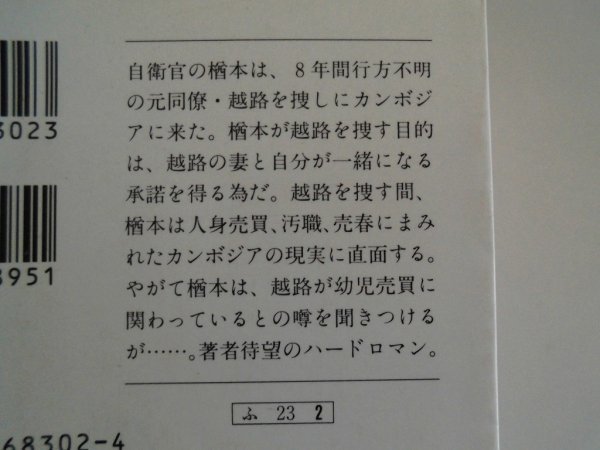 自衛官の楢本は、8年間行方不明
の元同僚・越路を捜しにカンボジ
アに来た。楢本が越路を捜す目的
は、越路の妻と自分が一緒になる
承諾を得る為だ。越路を捜す間、
楢本は人身売買、汚職、売春にまみ
れたカンボジアの現実に直面する。
やがて楢本は、越路が幼児売買に
関わっているとの噂を聞きつける
が……。著者待望のハードロマン。
ふ 23 2
3023
8951
68302-4